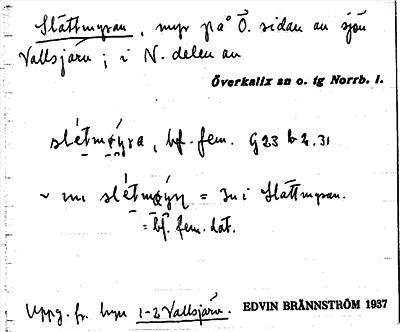 Slåttmyran, myr på Ö. sidan av sjön
Vallsjärv; i N. delen av
Överkalix sn o. tg Norrb. l.
slétmøyra, bf. fem. G 23 b 2.31
~ ini slétmøyn = In i Slåttmyran.
= bf. fem. dat.
Uppg. fr. byn 1-2 Vallsjärv. EDVIN BRÄNNSTRÖM 1937